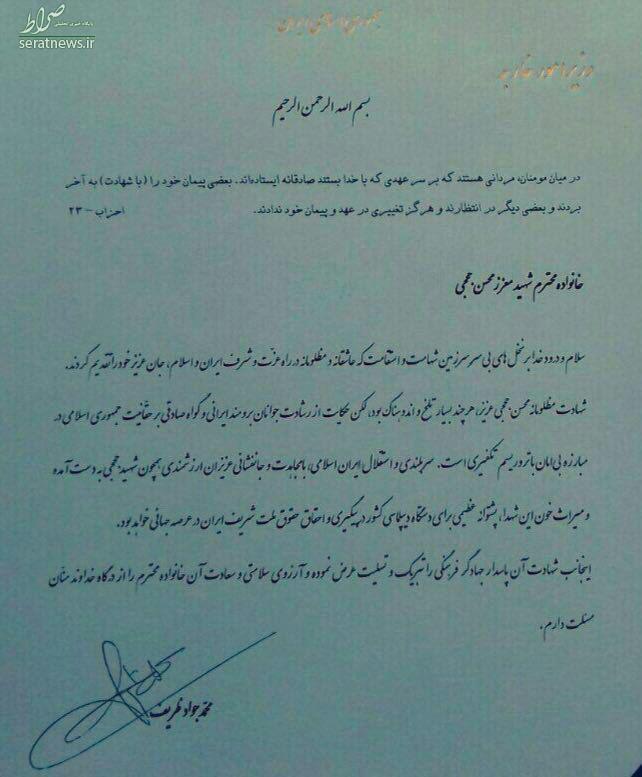 صراط
پایگاه خبری تحلیلی
seratnews.ir
جمهوری اسلامی ایران
وزیر امور خارجه
بسم الله الرحمن الرحیم
در میان مومنان، مردانی هستند که بر سر عهدی که با خدا بستند صادقانه ایستاده‌اند. بعضی پیمان خود را (با شهادت) به آخر
بردند و بعضی دیگر در انتظارند و هرگز تغییری در عهد و پیمان خود ندادند. احزاب - ۲۳
خانواده محترم شهید معزز محسن حججی
سلام و درود خدا بر نخل‌های بی سر سرزمین شهامت و استقامت که عاشقانه و مظلومانه در راه عزت و شرف ایران و اسلام، جان عزیز خود را تقدیم کردند.
شهادت مظلومانه محسن حججی عزیز، هر چند بسیار تلخ و اندوهناک بود، لکن حکایت از رشادت جوانان برومند ایرانی و گواه صادقی بر حقانیت جمهوری اسلامی در
مبارزه بی‌امان با تروریسم تکفیری است. سربلندی و استقلال ایران اسلامی، با مجاهدت و جانفشانی عزیزان ارزشمندی همچون شهید حججی به دست آمده
و میراث خون این شهدا، پشتوانه عظیمی برای دستگاه دیپلماسی کشور در پیگیری و احقاق حقوق ملت شریف ایران در عرصه جهانی خواهد بود.
اینجانب شهادت آن پاسدار جهادگر فرهنگی را تبریک و تسلیت عرض نموده و آرزوی سلامتی و سعادت آن خانواده محترم را از درگاه خداوند منّان
مسئلت دارم.
محمد جواد ظریف